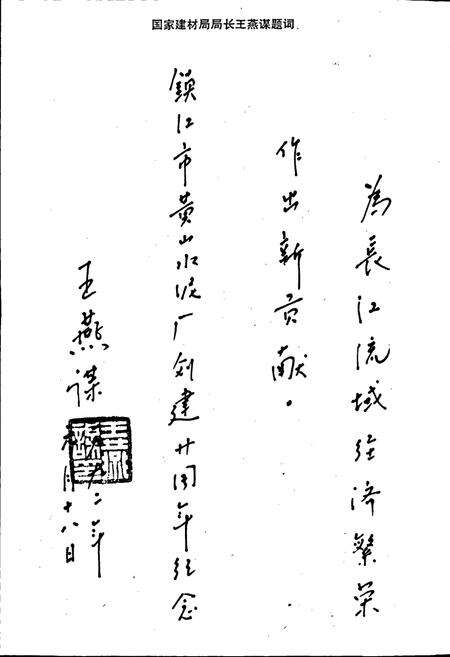 国家建材局局长王燕谋题词
为長江流域经济繁荣
作出新贡献。
鎮江市黄山水泥厂创建廿周年纪念
王燕谋
九二年
月十八日